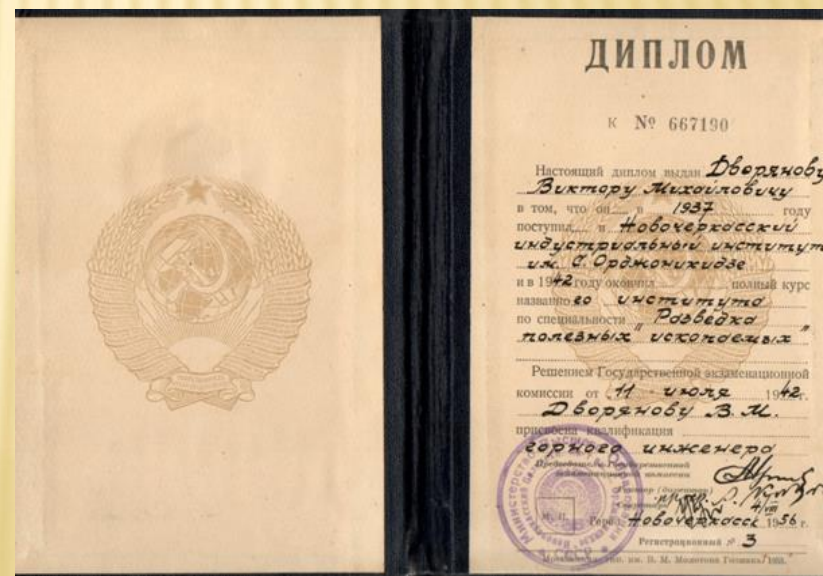 ДИПЛОМ
К № 667190
Настоящий диплом выдан Дворянову
Виктору Михайловичу
в том, что он в 1937 году
поступил в Новочеркасский
индустриальный институт
им. С. Орджоникидзе
и в 1942 году окончил полный курс
названного института
по специальности „Разведка
полезных ископаемых"
Решением Государственной экзаменационной
комиссии от 11 июля 1942 г.
Дворянову В. М.
присвоена квалификация
горного инженера
Председатель Государственной
экзаменационной комиссии
Ректор (директор)
Секретарь
М. П.
Город Новочеркасск 1956 г.
Регистрационный № 3